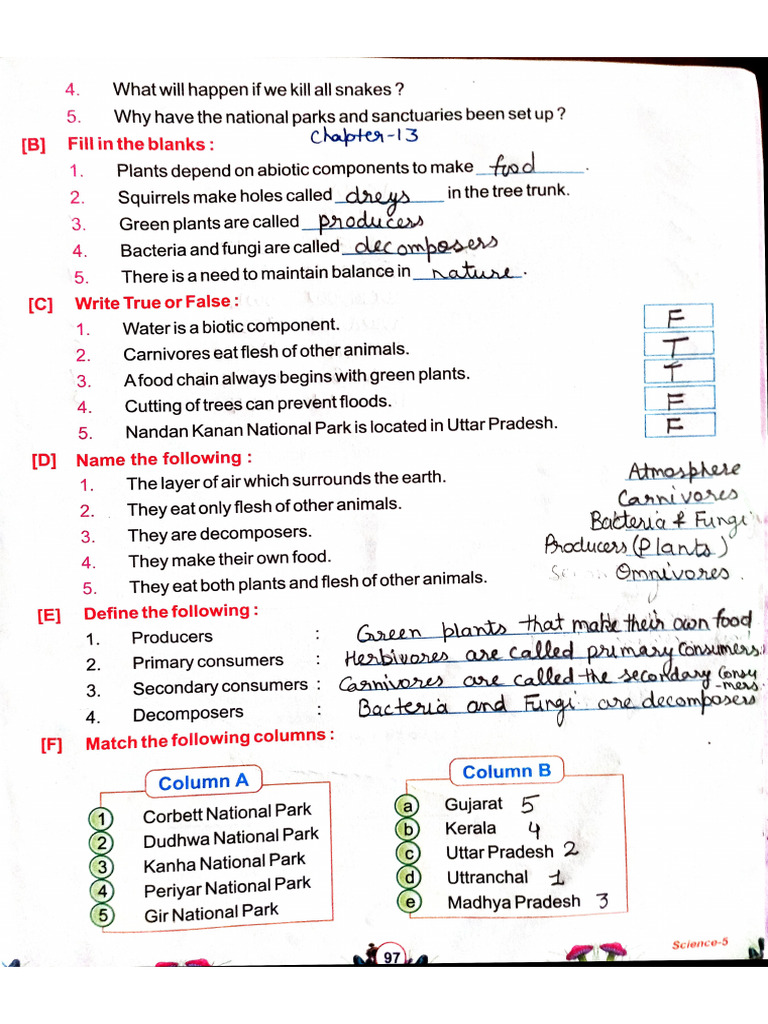 4. What will happen if we kill all snakes ?
5. Why have the national parks and sanctuaries been set up ?
Chapter-13
[B] Fill in the blanks :
1. Plants depend on abiotic components to make food .
2. Squirrels make holes called dreys in the tree trunk.
3. Green plants are called producers
4. Bacteria and fungi are called decomposers
5. There is a need to maintain balance in nature .
[C] Write True or False :
1. Water is a biotic component. F
2. Carnivores eat flesh of other animals. T
3. A food chain always begins with green plants. T
4. Cutting of trees can prevent floods. F
5. Nandan Kanan National Park is located in Uttar Pradesh. F
[D] Name the following :
1. The layer of air which surrounds the earth. Atmosphere
2. They eat only flesh of other animals. Carnivores
3. They are decomposers. Bacteria & Fungi
4. They make their own food. Producers (Plants)
5. They eat both plants and flesh of other animals. Omnivores .
[E] Define the following :
1. Producers : Green plants that make their own food
2. Primary consumers : Herbivores are called primary Consumers.
3. Secondary consumers : Carnivores are called the secondary Consu
-mers.
4. Decomposers : Bacteria and Fungi are decomposers
[F] Match the following columns :
Column A Column B
1 Corbett National Park a Gujarat 5
2 Dudhwa National Park b Kerala 4
3 Kanha National Park c Uttar Pradesh 2
4 Periyar National Park d Uttranchal 1
5 Gir National Park e Madhya Pradesh 3
Science-5
97